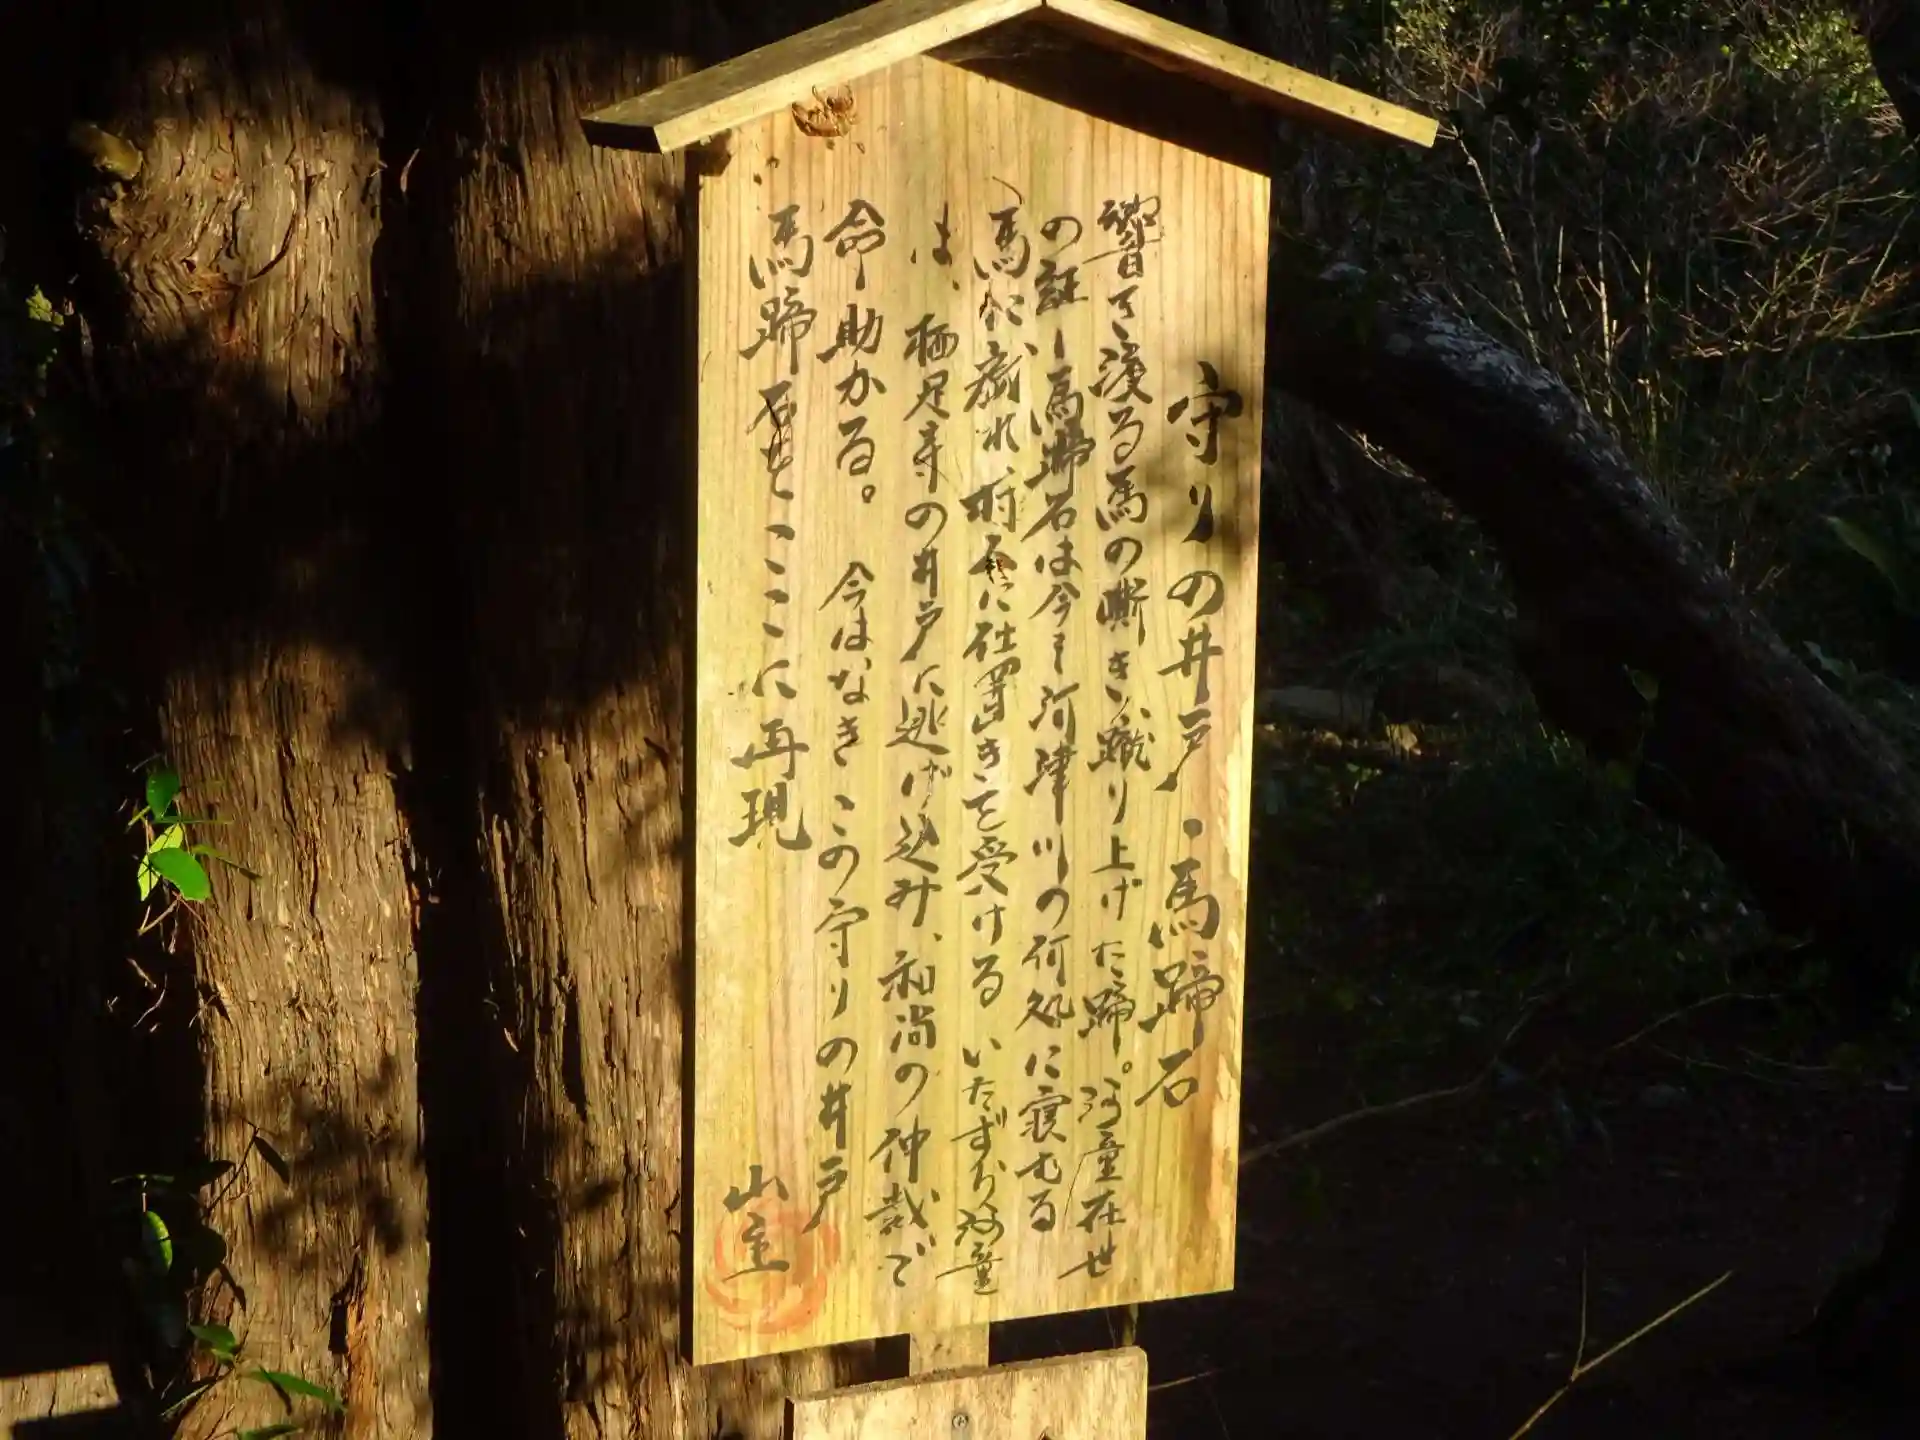 守りの井戸・馬蹄石
響き渡る馬の嘶き、蹴り上げた蹄。河童在世
の証し馬蹄石は今も河津川の何処に寝むる
馬に戯れ、村人に仕置きを受ける いたずら河童
は、栖足寺の井戸に逃げ込み、和尚の仲裁で
命助かる。 今はなき この守りの井戸
馬蹄石をここに再現
山主